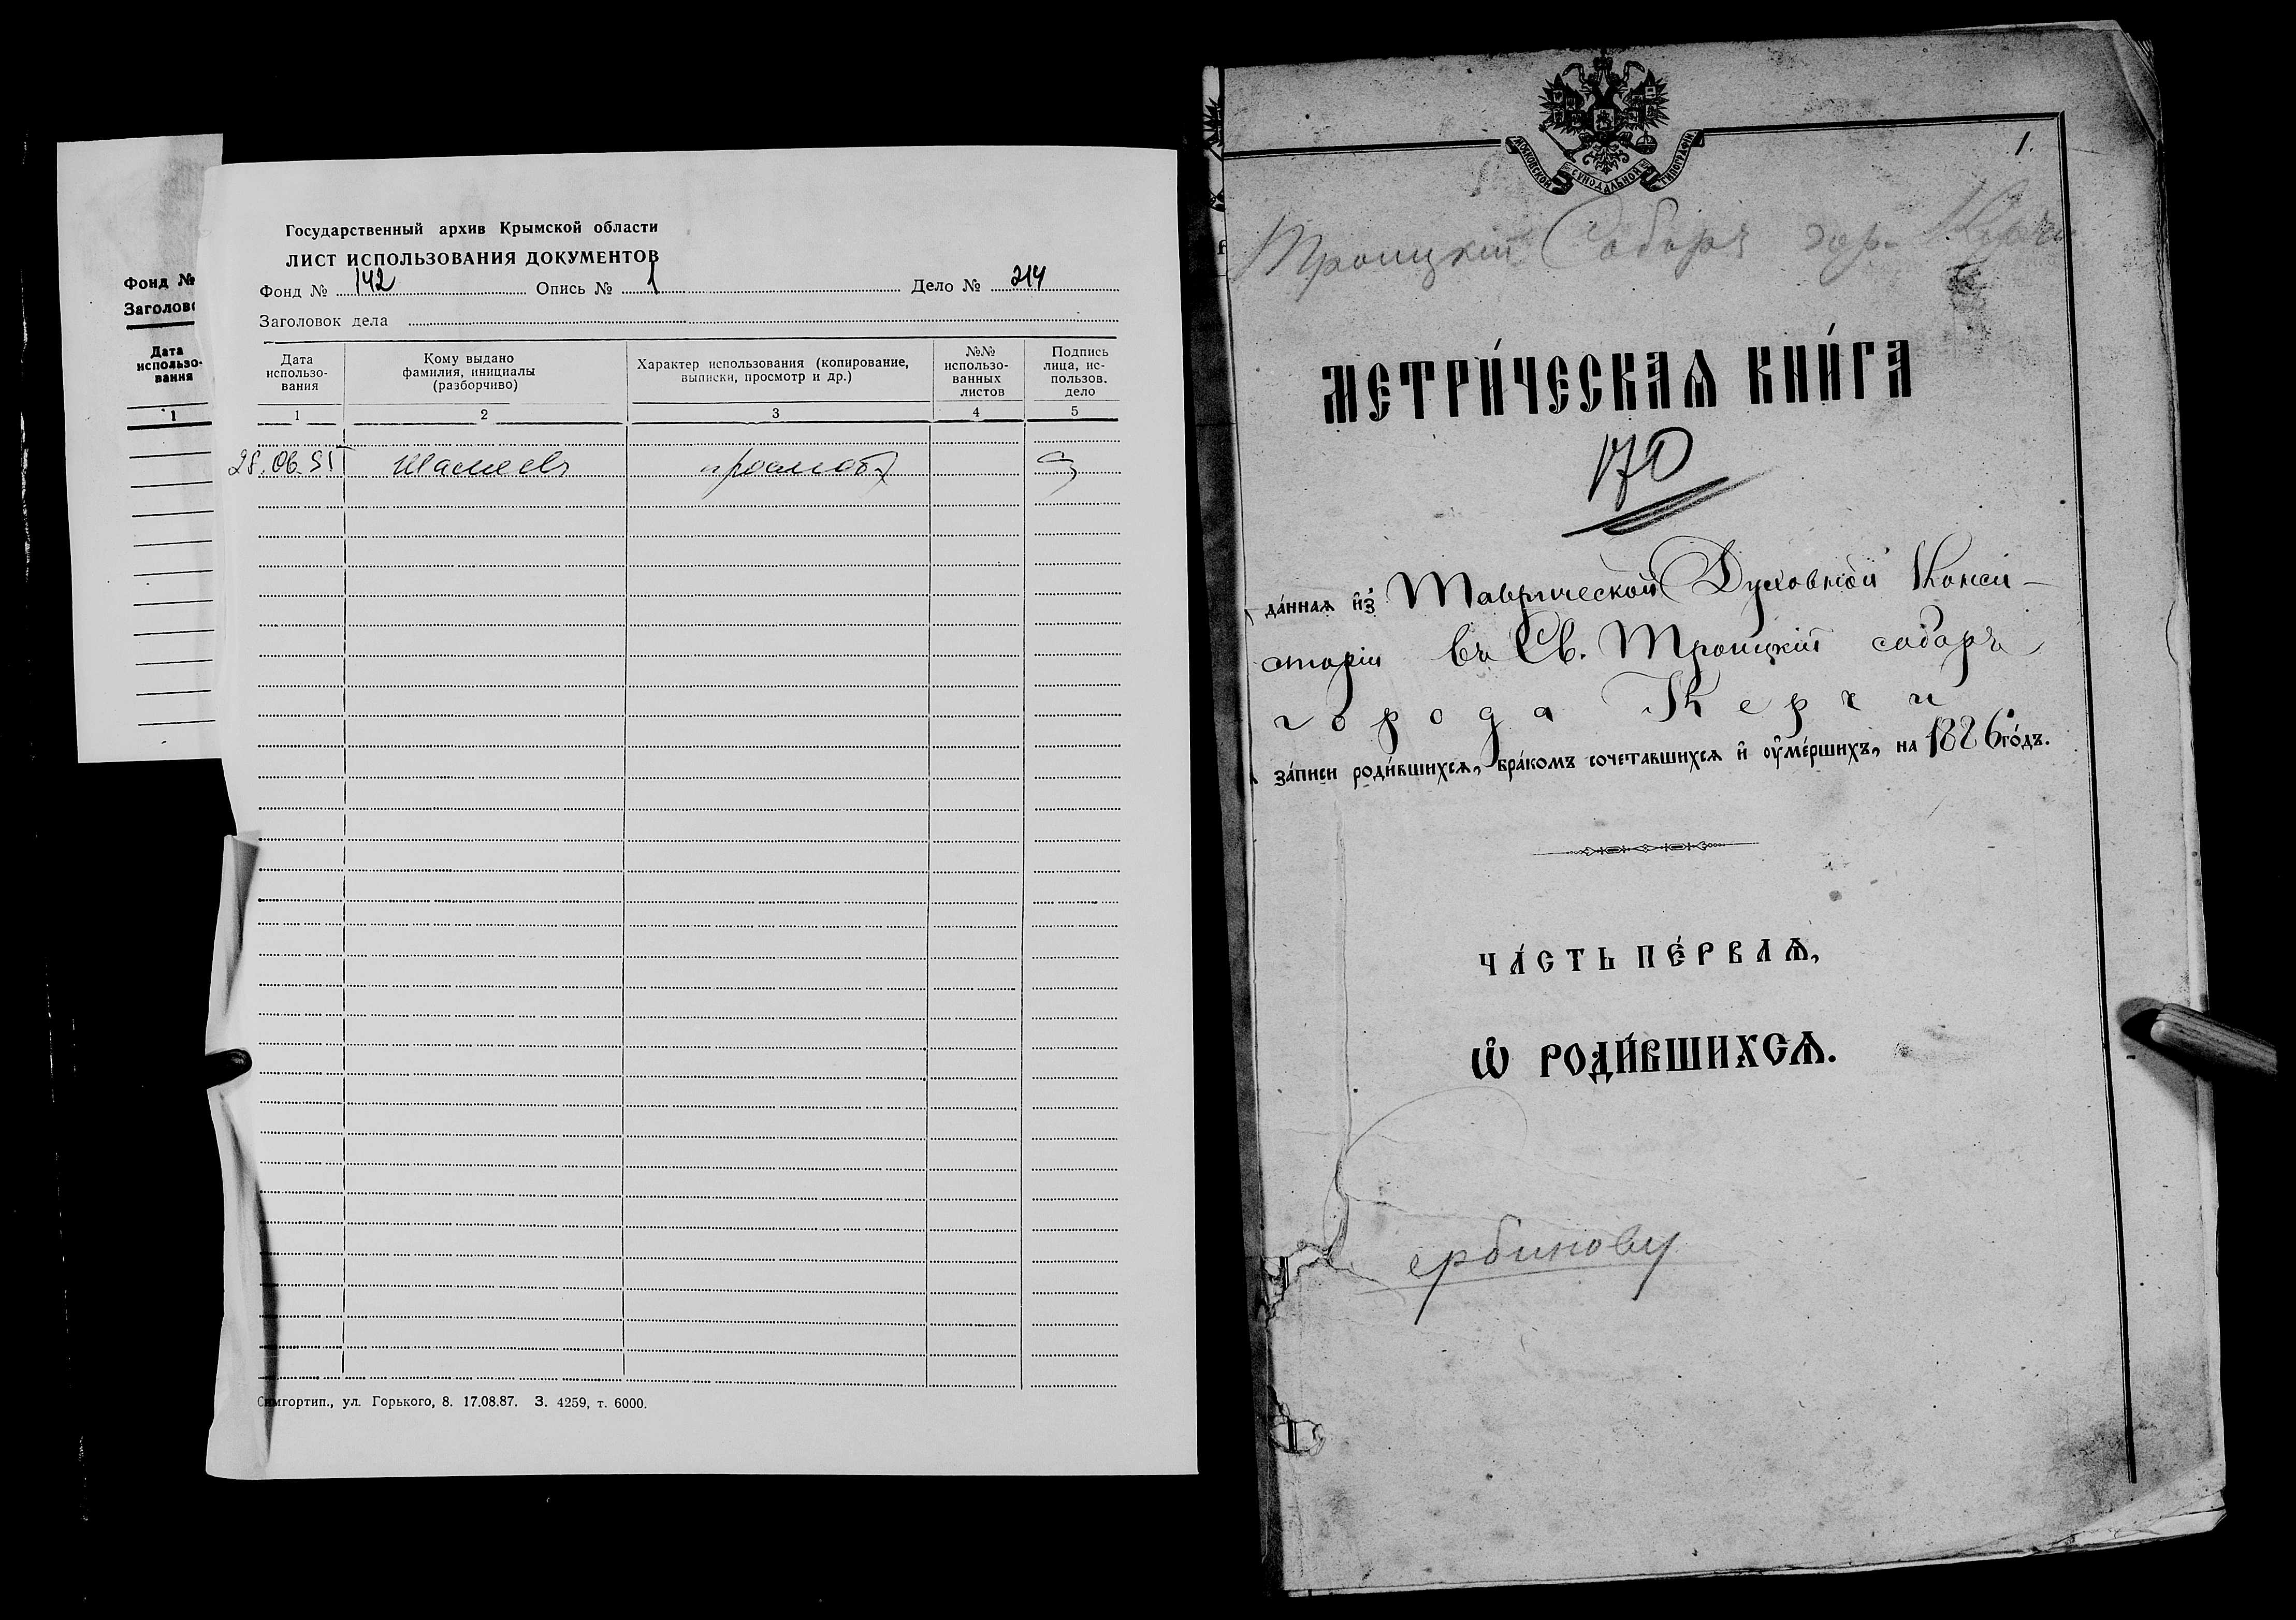 Фонд №
Заголов
Дата
использо-
вания
1
Государственный архив Крымской области
ЛИСТ ИСПОЛЬЗОВАНИЯ ДОКУМЕНТОВ
Фонд № 142 Опись № 1 Дело № 214
Заголовок дела
Дата использо- вания
Кому выдано фамилия, инициалы (разборчиво)
Характер использования (копирование, выписки, просмотр и др.)
№№ использо- ванных листов
Подпись лица, ис- пользов. дело
1 2 3 4 5
просмотр
Симгортип., ул. Горького, 8. 17.08.87. З. 4259, т. 6000.
МОСКОВСКОЙ СѴНОДАЛЬНОЙ ТИПОГРАФІИ
1.
Троицкій Соборъ гор. Керчи
МЕТРИ́ЧЕСКАѦ КНИ́ГА
170
да́нная и҆з̾ Таврической Духовной Конси-
сторіи въ Св. Троицкій соборъ
города Керчи
за́писи роди́вшихсѧ, бра́комъ сочетавшихсѧ и҆ оу҆ме́ршихъ, на 1886 го́дъ.
ЧА́СТЬ ПЕ́РВАѦ,
Ѡ҆ РОДИ́ВШИХСѦ.
ербинову